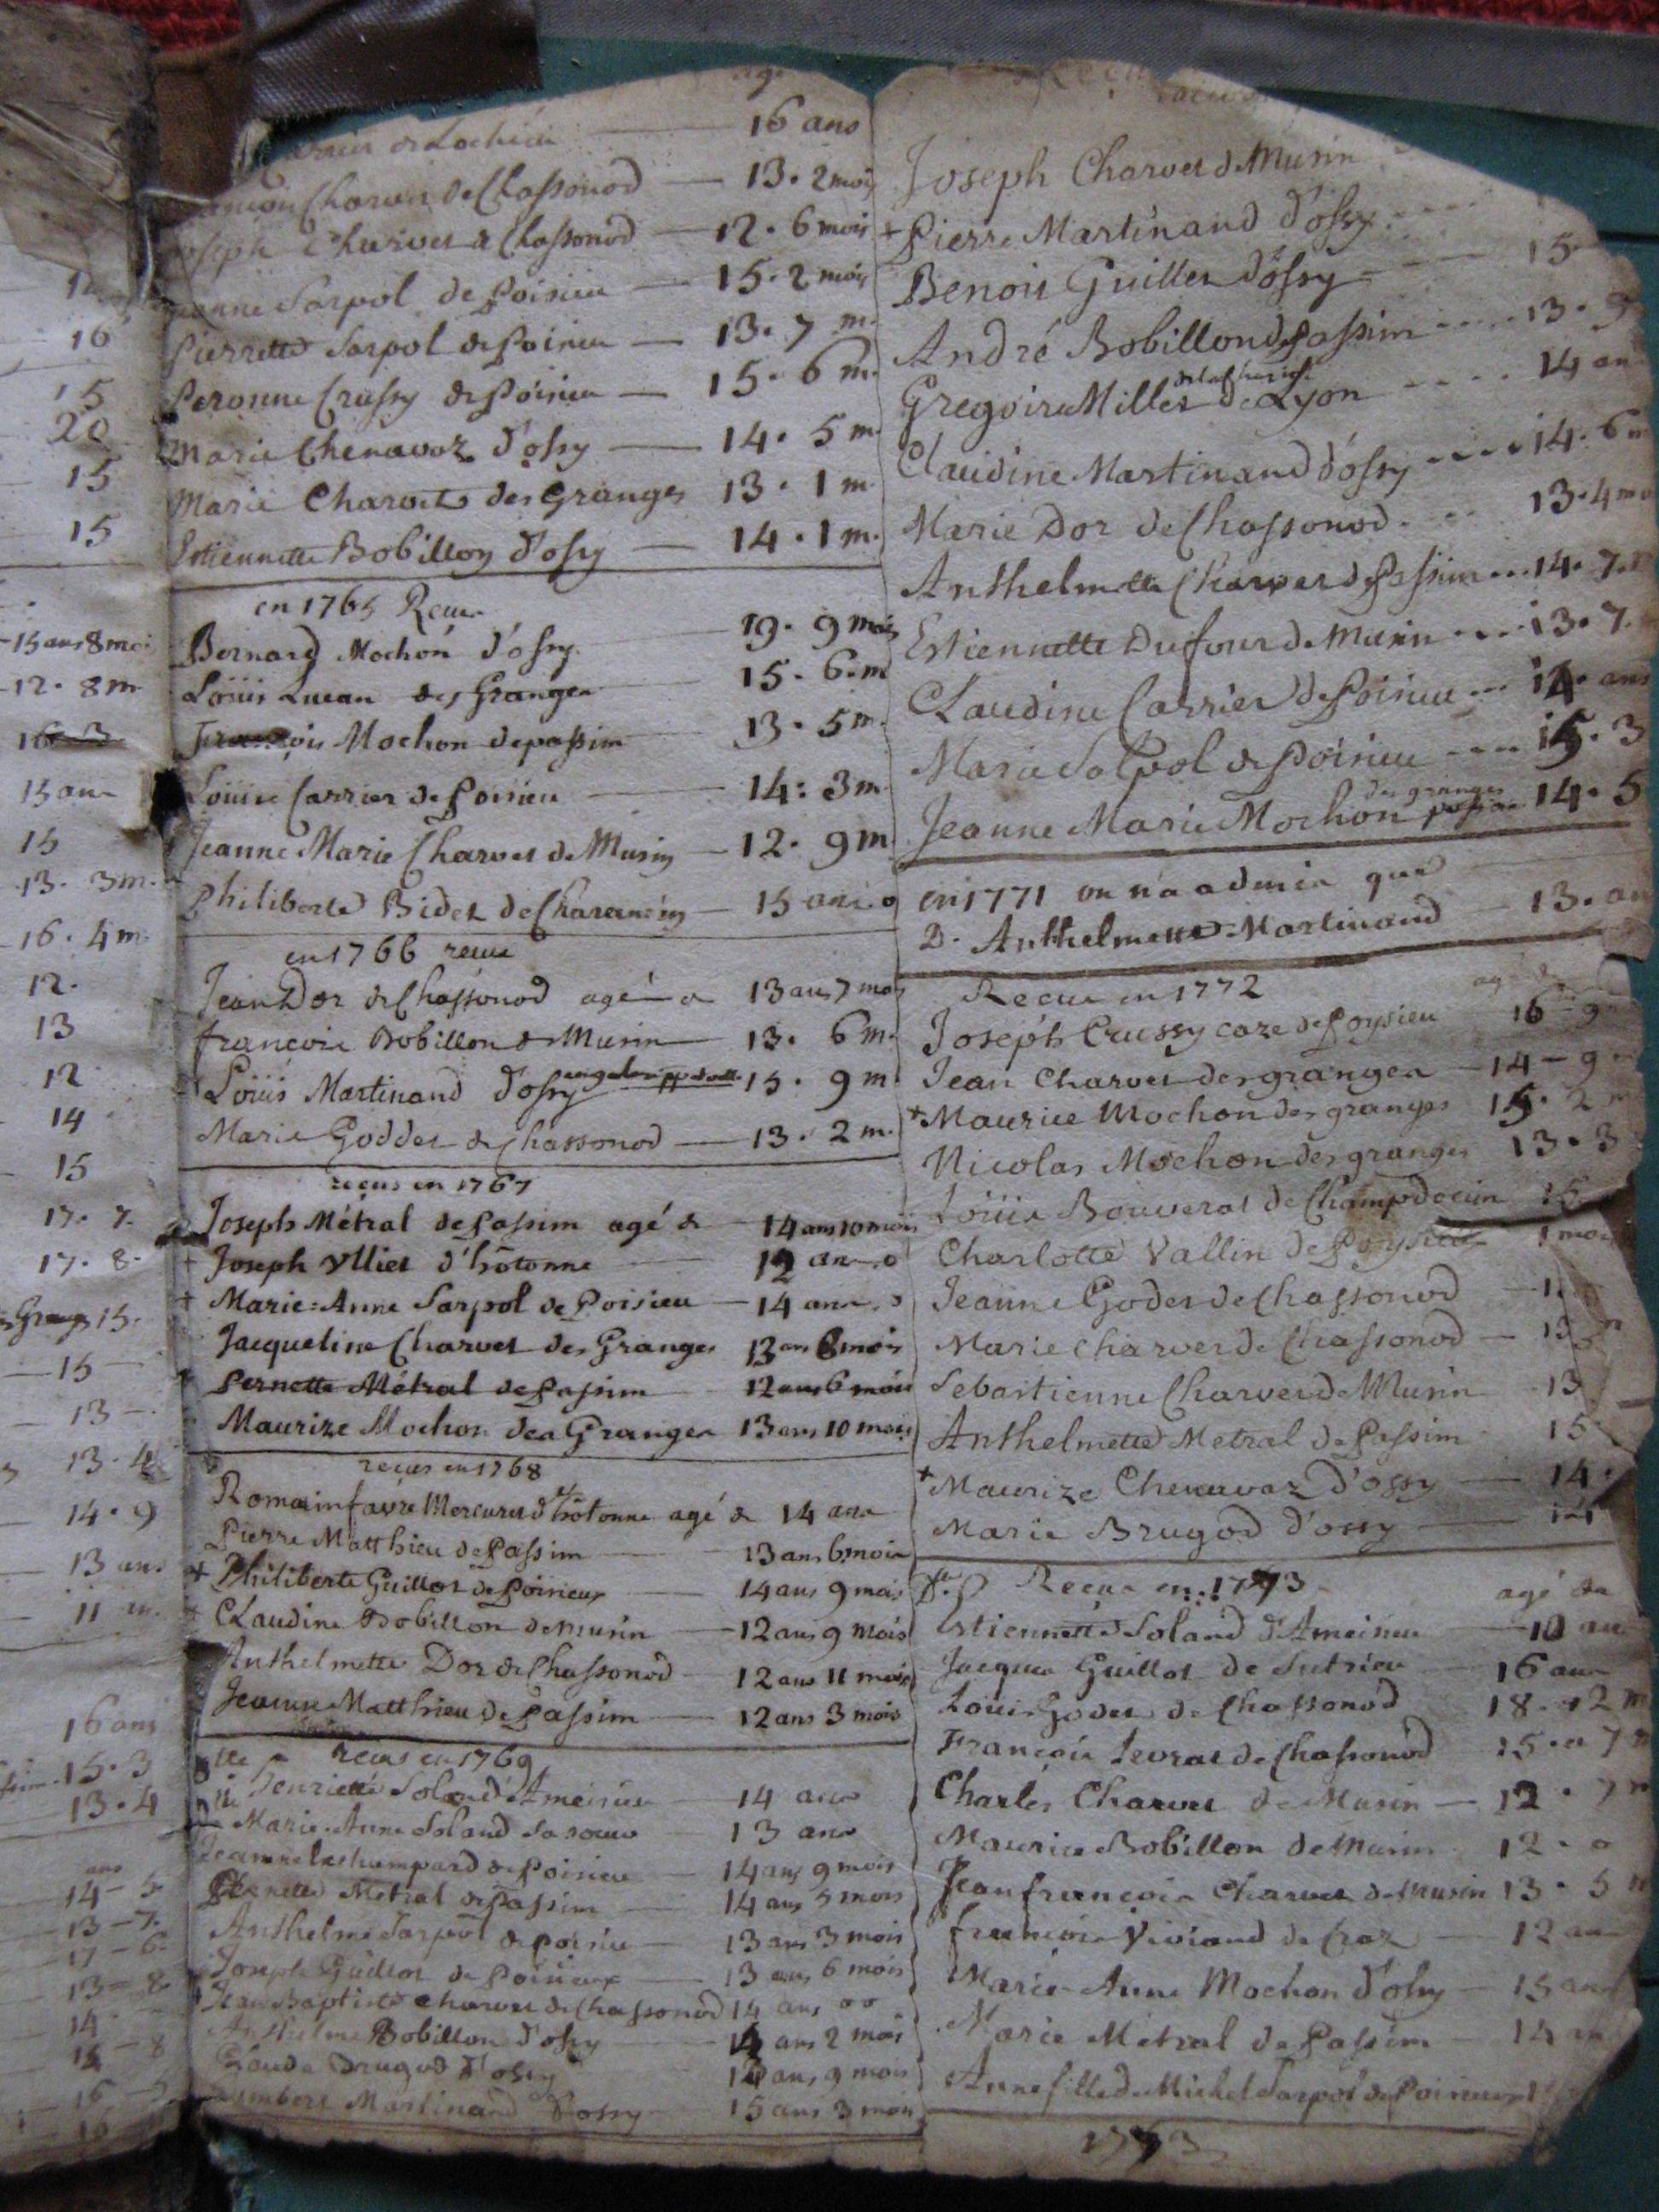 16
15
20
15
15
15 ans 8 moi
12. 8 m
16 3
15 ans
15
13. 3 m.
16. 4 m.
12.
13
12
14
15
17. 7.
17. 8.
15.
15
13
13. 4
14. 9
13 ans
11
16 ans
15. 3
13. 4
ans
14 - 5
13 - 7.
17 - 6.
13 - 8
14
16
16 ans
Charvet de Chassonod — 13. 2 mois
Joseph Charvet de Chassonod — 12. 6 mois
Jeanne Sarpol de Poisieu — 15. 2 mois
Pierrette Sarpol de Poisieu — 13. 7 m.
Peronne Crussy de Poisieu — 15. 6 m.
Marie Chenavaz d'ossy — 14. 5 m.
Marie Charvet des Granges 13. 1 m.
Estiennette Bobillon d'ossy — 14. 1 m.
en 1765 Receus
Bernard Mochon d'ossy 19. 9 mois
Loüis Lucan des Granges 15. 6. m
François Mochon de passim 13. 5 m.
Loüise Carrier de Poisieu — 14: 3 m
Jeanne Marie Charvet de Musin — 12. 9 m
Philiberte Bidet de Charancin — 15 ans. 0
en 1766 receus
Jean Dor de Chassonod agé de 13 ans 7 mois
françois Bobillon de Musin — 13. 6 m.
Loüis Martinand d'ossy 15. 9 m.
Marie Goddet de Chassonod — 13. 2 m.
reçus en 1767
Joseph Métral de Passim agé de — 14 ans 10 mois
+ Joseph Ylliet d'hôtonne — 12 ans. 0
+ Marie-Anne Sarpol de Poisieu — 14 ans. 0
Jacqueline Charvet des Granges 13 ans 8 mois
Pernette Métral de Passim 12 ans 6 mois
Maurize Mochon des Granges 13 ans 10 mois
reçus en 1768
Romain favre Mercuret d'hôtonne agé de 14 ans
Pierre Matthieu de Passim — 13 ans 6 mois
+ Philiberte Guillot de Poisieux — 14 ans 9 mois
+ Claudine Bobillon de musin — 12 ans 9 mois
Anthelmette Dor de Chassonod — 12 ans 11 mois
Jeanne Matthieu de Passim — 12 ans 3 mois
reçus en 1769
Dlle henriette Soland d'Ameisieu — 14 ans
Dlle Marie-Anne Soland sa soeur — 13 ans
Jeanne de Poisieu — 14 ans 9 mois
Pernette Metral de Passim — 14 ans 5 mois
Anthelme Sarpol de poisieu — 13 ans 3 mois
Joseph Guillot de Poisieux — 13 ans 6 mois
Jean Baptiste Charvet de Chassonod 14 ans 00
Anthelme Bobillon d'ossy — 14 ans 2 mois
Claude Brugod d'ossy 12 ans 9 mois
Martinand d'ossy — 15 ans 3 mois
Joseph Charvet de Musin
+ Pierre Martinand d'ossy
Benoit Guillet d'ossy — 15
André Bobillon de Passim 13. 9
Gregoire Millet de Lyon 14 an
Claudine Martinand d'ossy 14. 6 m
Marie Dor de Chassonod 13. 4 mo
Anthelmette Charvet de Passim 14. 7.
Estiennette Dufour de Musin 13. 7.
Claudine Carrier de Poisieu 14. ans
Marie Salpol de Poisieu 15. 3
des granges
Jeanne Marie Mochon 14. 5
en 1771 on n'a admis que
D. Anthelmette Martinand — 13. an
Receus en 1772
Joseph Crussy caze de Poysieu 16 - 9
Jean Charvet des granges — 14 - 9
+ Maurice Mochon des granges 15. 2 m
Nicolas Mochon des granges 13. 3
Loüis Bouverat de Champdocin 15
Charlotte Vallin de Poysieu 1 mois
Jeanne Godet de Chassonod
Marie Charvet de Chassonod — 13
Sebastienne Charvet de Musin 13
Anthelmette Metral de Passim 15
+ Maurize Chenavaz d'ossy — 14.
Marie Brugod d'ossy — 14
Receus en 1773 agé de
Estiennette Soland d'Ameisieu — 10 ans
Jacques Guillot de Sutrieu — 16 ans
Louis Godet de Chassonod 18. 2 m
François Levrat de Chassonod 15. 7
Charles Charvet de Musin — 12. 7 m
Maurice Bobillon de Musin 12. 0
Jean françois Charvet de Musin 13. 5
francois Viviand de Craz — 12 an
Marie-Anne Mochon d'ossy — 15 ans
Marie Metral de Passim — 14 an
Anne fille de Michel Sarpol de Poisieux
1773